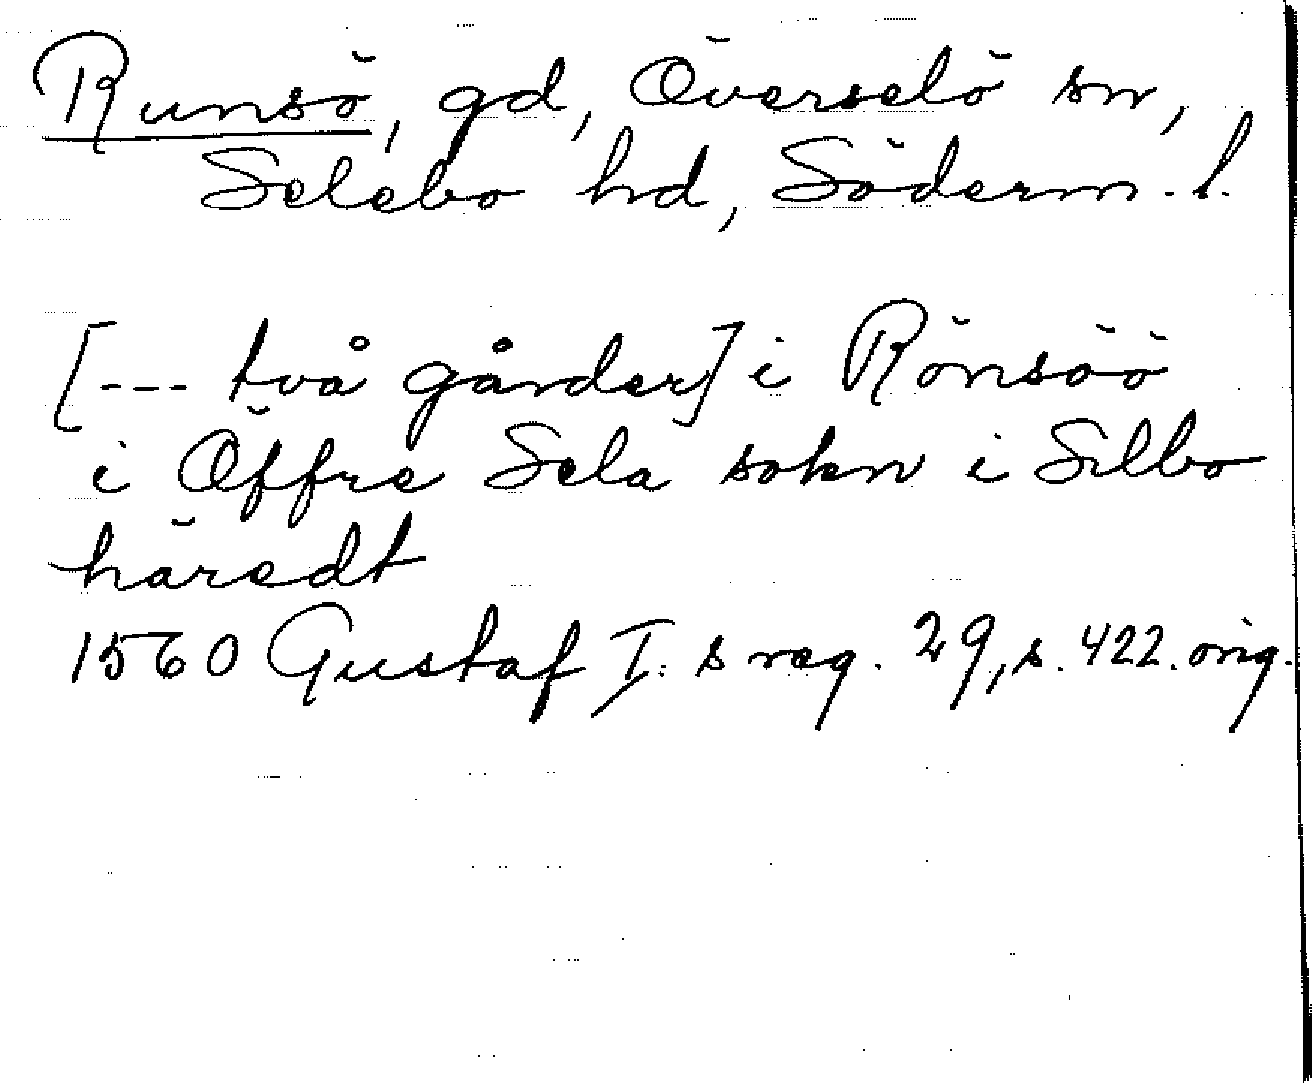 Runsö, gd, Överselö sn,
Selebo hd, Söderm. l.
[--- två gårder] i Rönsöö
i Öffre Sela sokn i Silbo
häredt
1560 Gustaf I: s reg. 29, s. 422. orig.